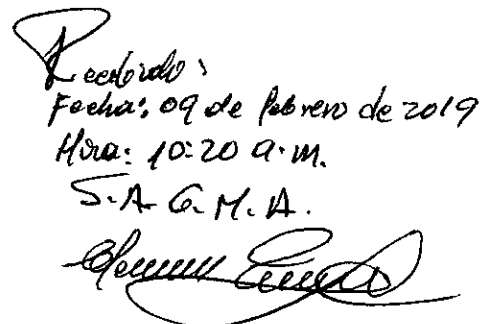 Recibido:
Fecha: 09 de febrero de 2019
Hora: 10:20 a.m.
S.A.G.M.A.